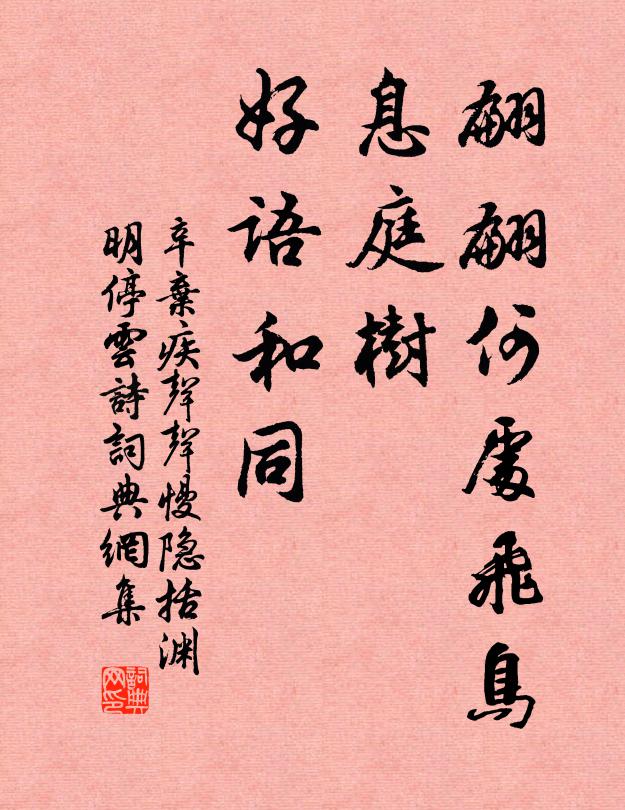 翩翩何處飛鳥
息庭樹
好語和同
辛棄疾聲聲慢隐括淵
明停雲詩詞典網集
詞典
网印